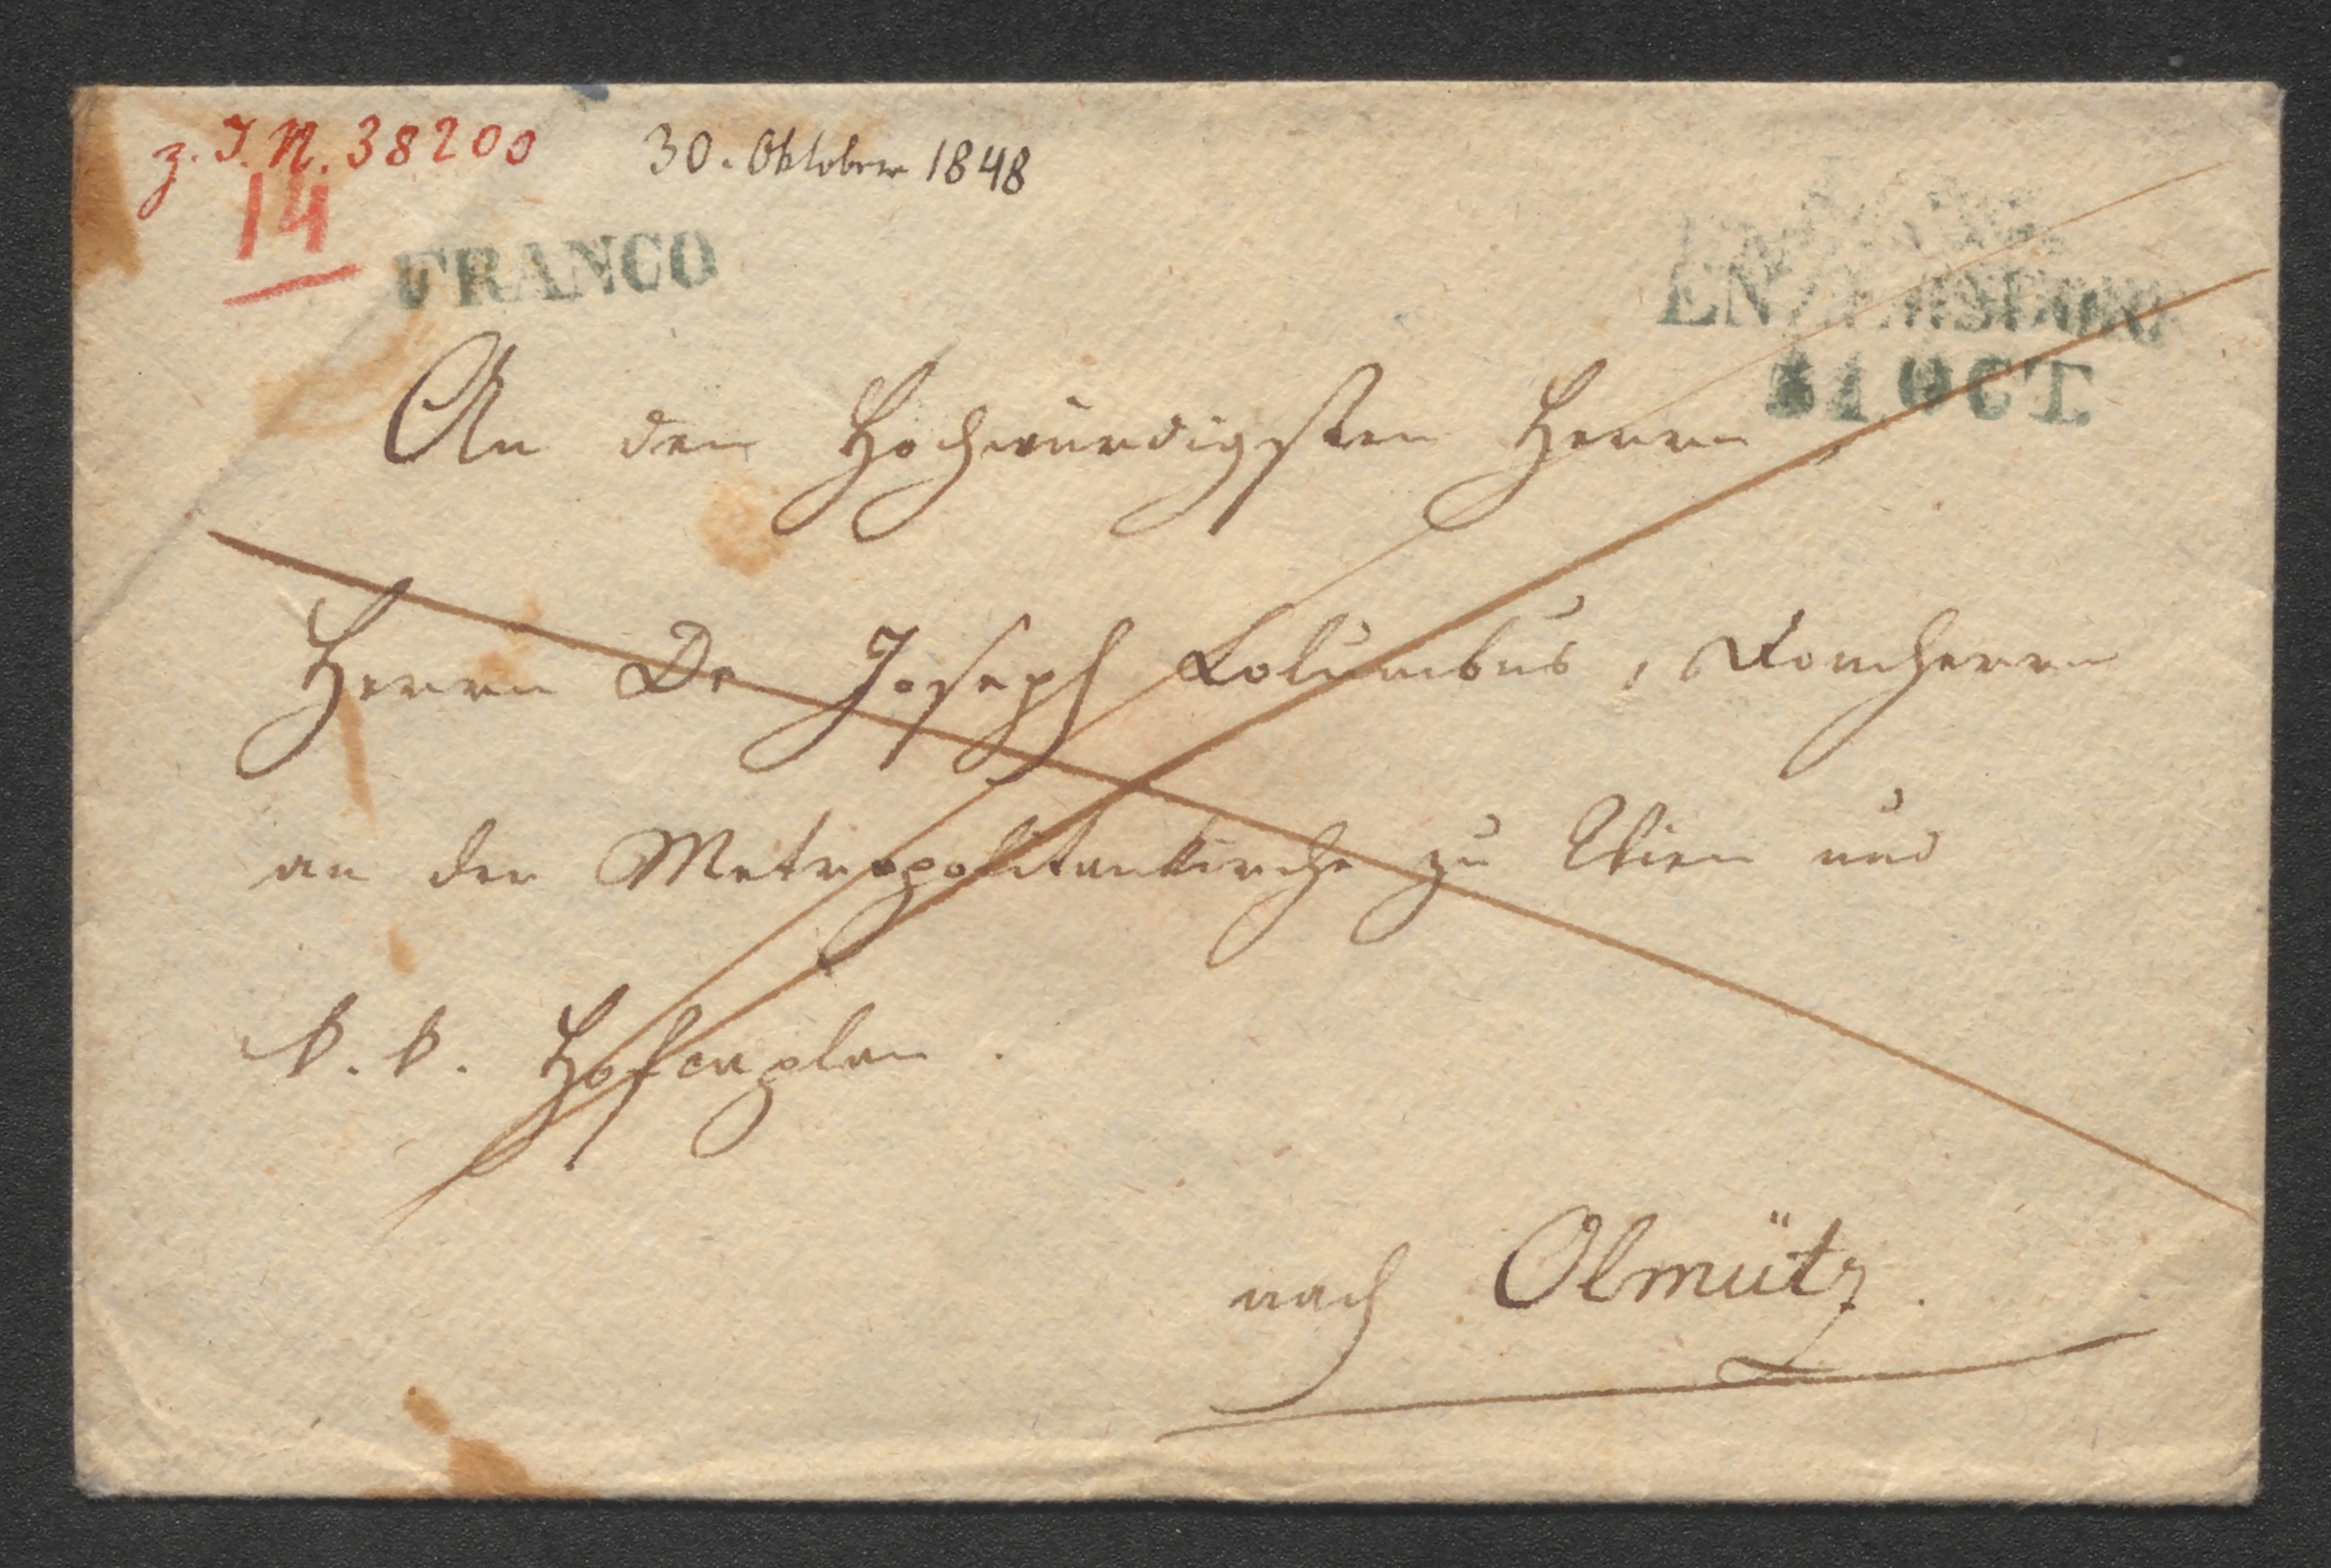 z. J. N. 38200 30. Oktober 1848
14
FRANCO
ENZERSDORF
31 OCT.
An den Hochwürdigsten Herrn
Herrn Dr Joseph Columbus, Domherrn
an der Metropolitankirche zu Wien und
k. k. Hofcaplan.
nach Olmütz.